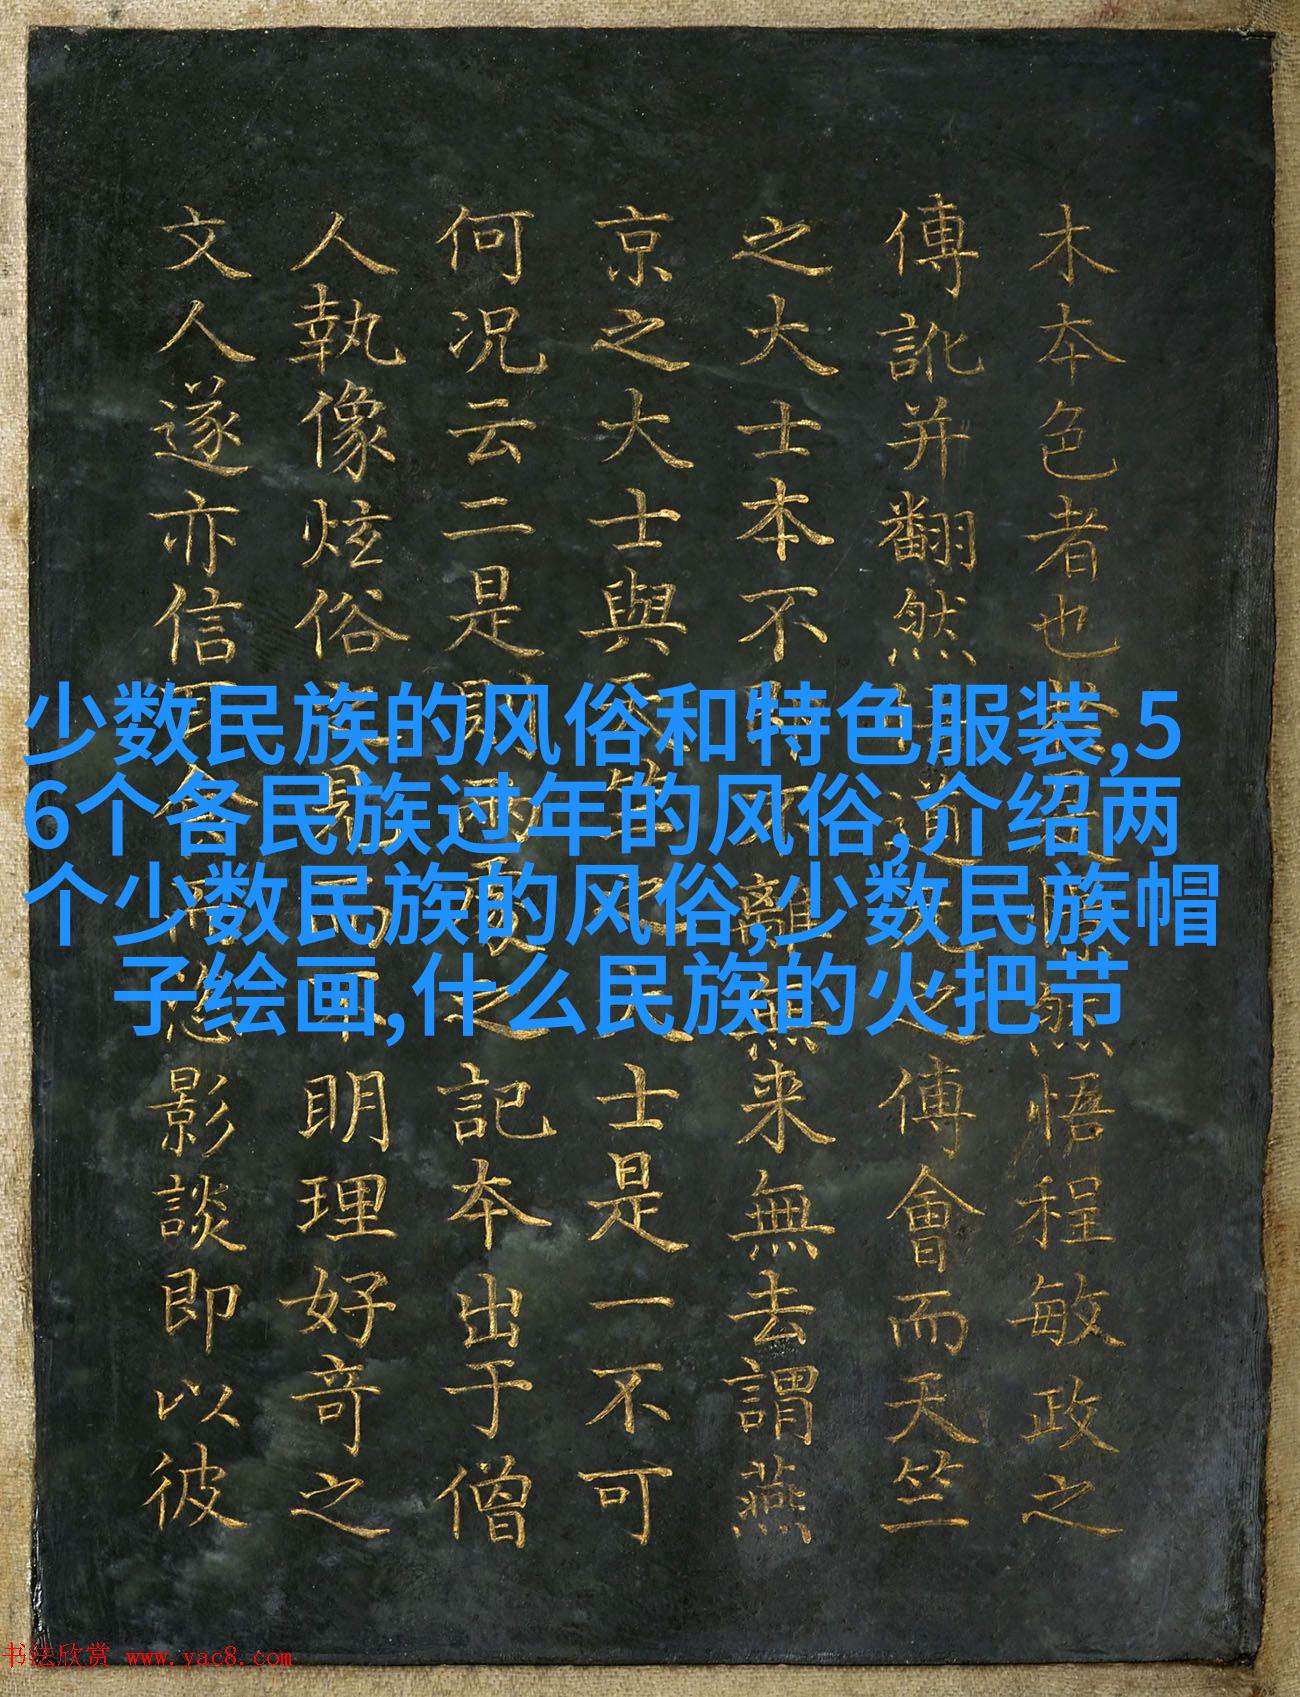 木夲色者也然悟程敏政之
傳訛并翻然道之傅會而天竺
之大士本不離無来無去謂燕
京之大士與天竺之大士是一不可
何况云二是則兩之記夲出于僧
人執像炫俗明理好奇之
文人遂亦信影談即以彼
少数民族的风俗和特色服装,5
6个各民族过年的风俗,介绍两
个少数民族的风俗,少数民族帽
子绘画,什么民族的火把节
书法欣赏 www.yac8.com